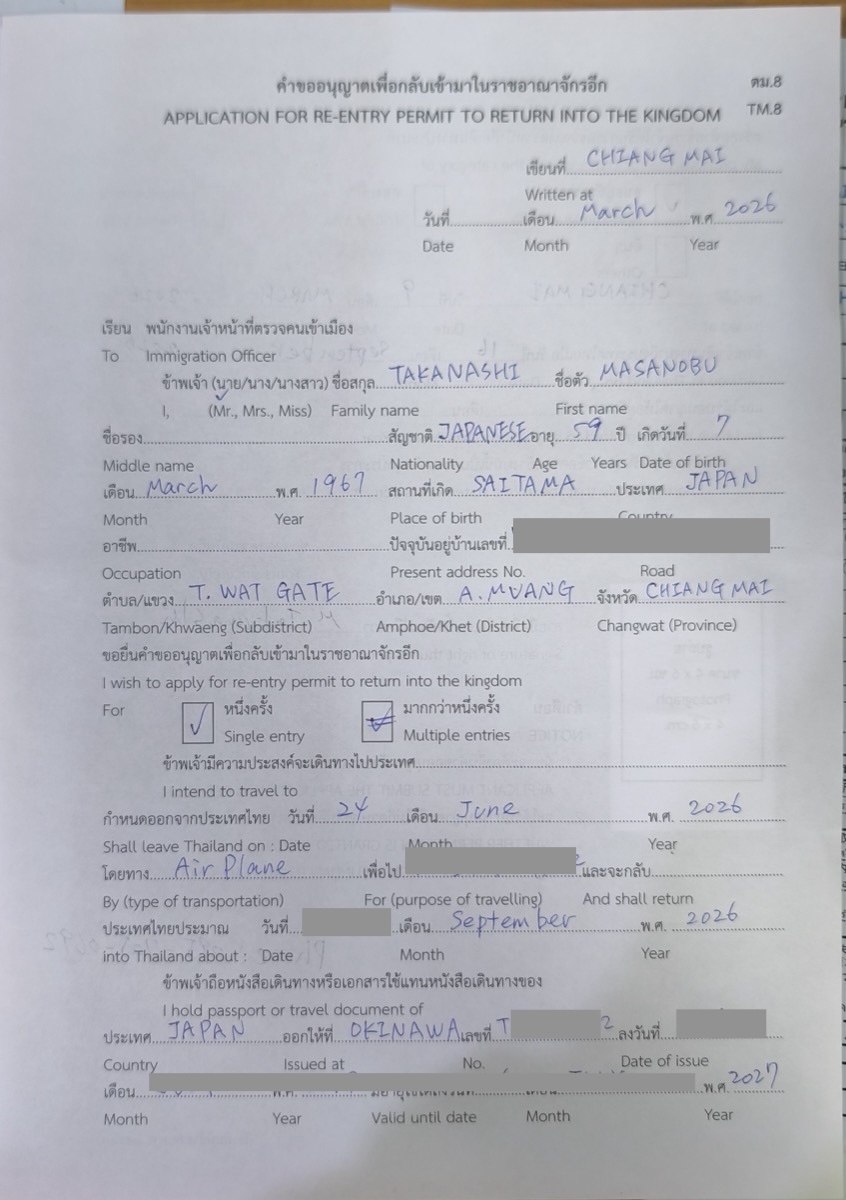 คำขออนุญาตเพื่อกลับเข้ามาในราชอาณาจักรอีก ตม.8
APPLICATION FOR RE-ENTRY PERMIT TO RETURN INTO THE KINGDOM TM.8
เขียนที่ CHIANG MAI
Written at
วันที่ เดือน March พ.ศ. 2026
Date Month Year
เรียน พนักงานเจ้าหน้าที่ตรวจคนเข้าเมือง
To Immigration Officer
ข้าพเจ้า (นาย/นาง/นางสาว) ชื่อสกุล TAKANASHI ชื่อตัว MASANOBU
I, (Mr., Mrs., Miss) Family name First name
ชื่อรอง สัญชาติ JAPANESE อายุ 59 ปี เกิดวันที่ 7
Middle name Nationality Age Years Date of birth
เดือน March พ.ศ. 1967 สถานที่เกิด SAITAMA ประเทศ JAPAN
Month Year Place of birth Country
อาชีพ ปัจจุบันอยู่บ้านเลขที่
Occupation Present address No. Road
ตำบล/แขวง T. WAT GATE อำเภอ/เขต A. MUANG จังหวัด CHIANG MAI
Tambon/Khwaeng (Subdistrict) Amphoe/Khet (District) Changwat (Province)
ขอยื่นคำขออนุญาตเพื่อกลับเข้ามาในราชอาณาจักรอีก
I wish to apply for re-entry permit to return into the kingdom
For หนึ่งครั้ง มากกว่าหนึ่งครั้ง
Single entry Multiple entries
ข้าพเจ้ามีความประสงค์จะเดินทางไปประเทศ
I intend to travel to
กำหนดออกจากประเทศไทย วันที่ 24 เดือน June พ.ศ. 2026
Shall leave Thailand on : Date Month Year
โดยทาง Air Plane เพื่อไป และจะกลับ
By (type of transportation) For (purpose of travelling) And shall return
ประเทศไทยประมาณ วันที่ เดือน September พ.ศ. 2026
into Thailand about : Date Month Year
ข้าพเจ้าถือหนังสือเดินทางหรือเอกสารใช้แทนหนังสือเดินทางของ
I hold passport or travel document of
ประเทศ JAPAN ออกให้ที่ OKINAWA เลขที่ T 2 ลงวันที่
Country Issued at No. Date of issue
เดือน พ.ศ. 2027
Month Year Valid until date Month Year